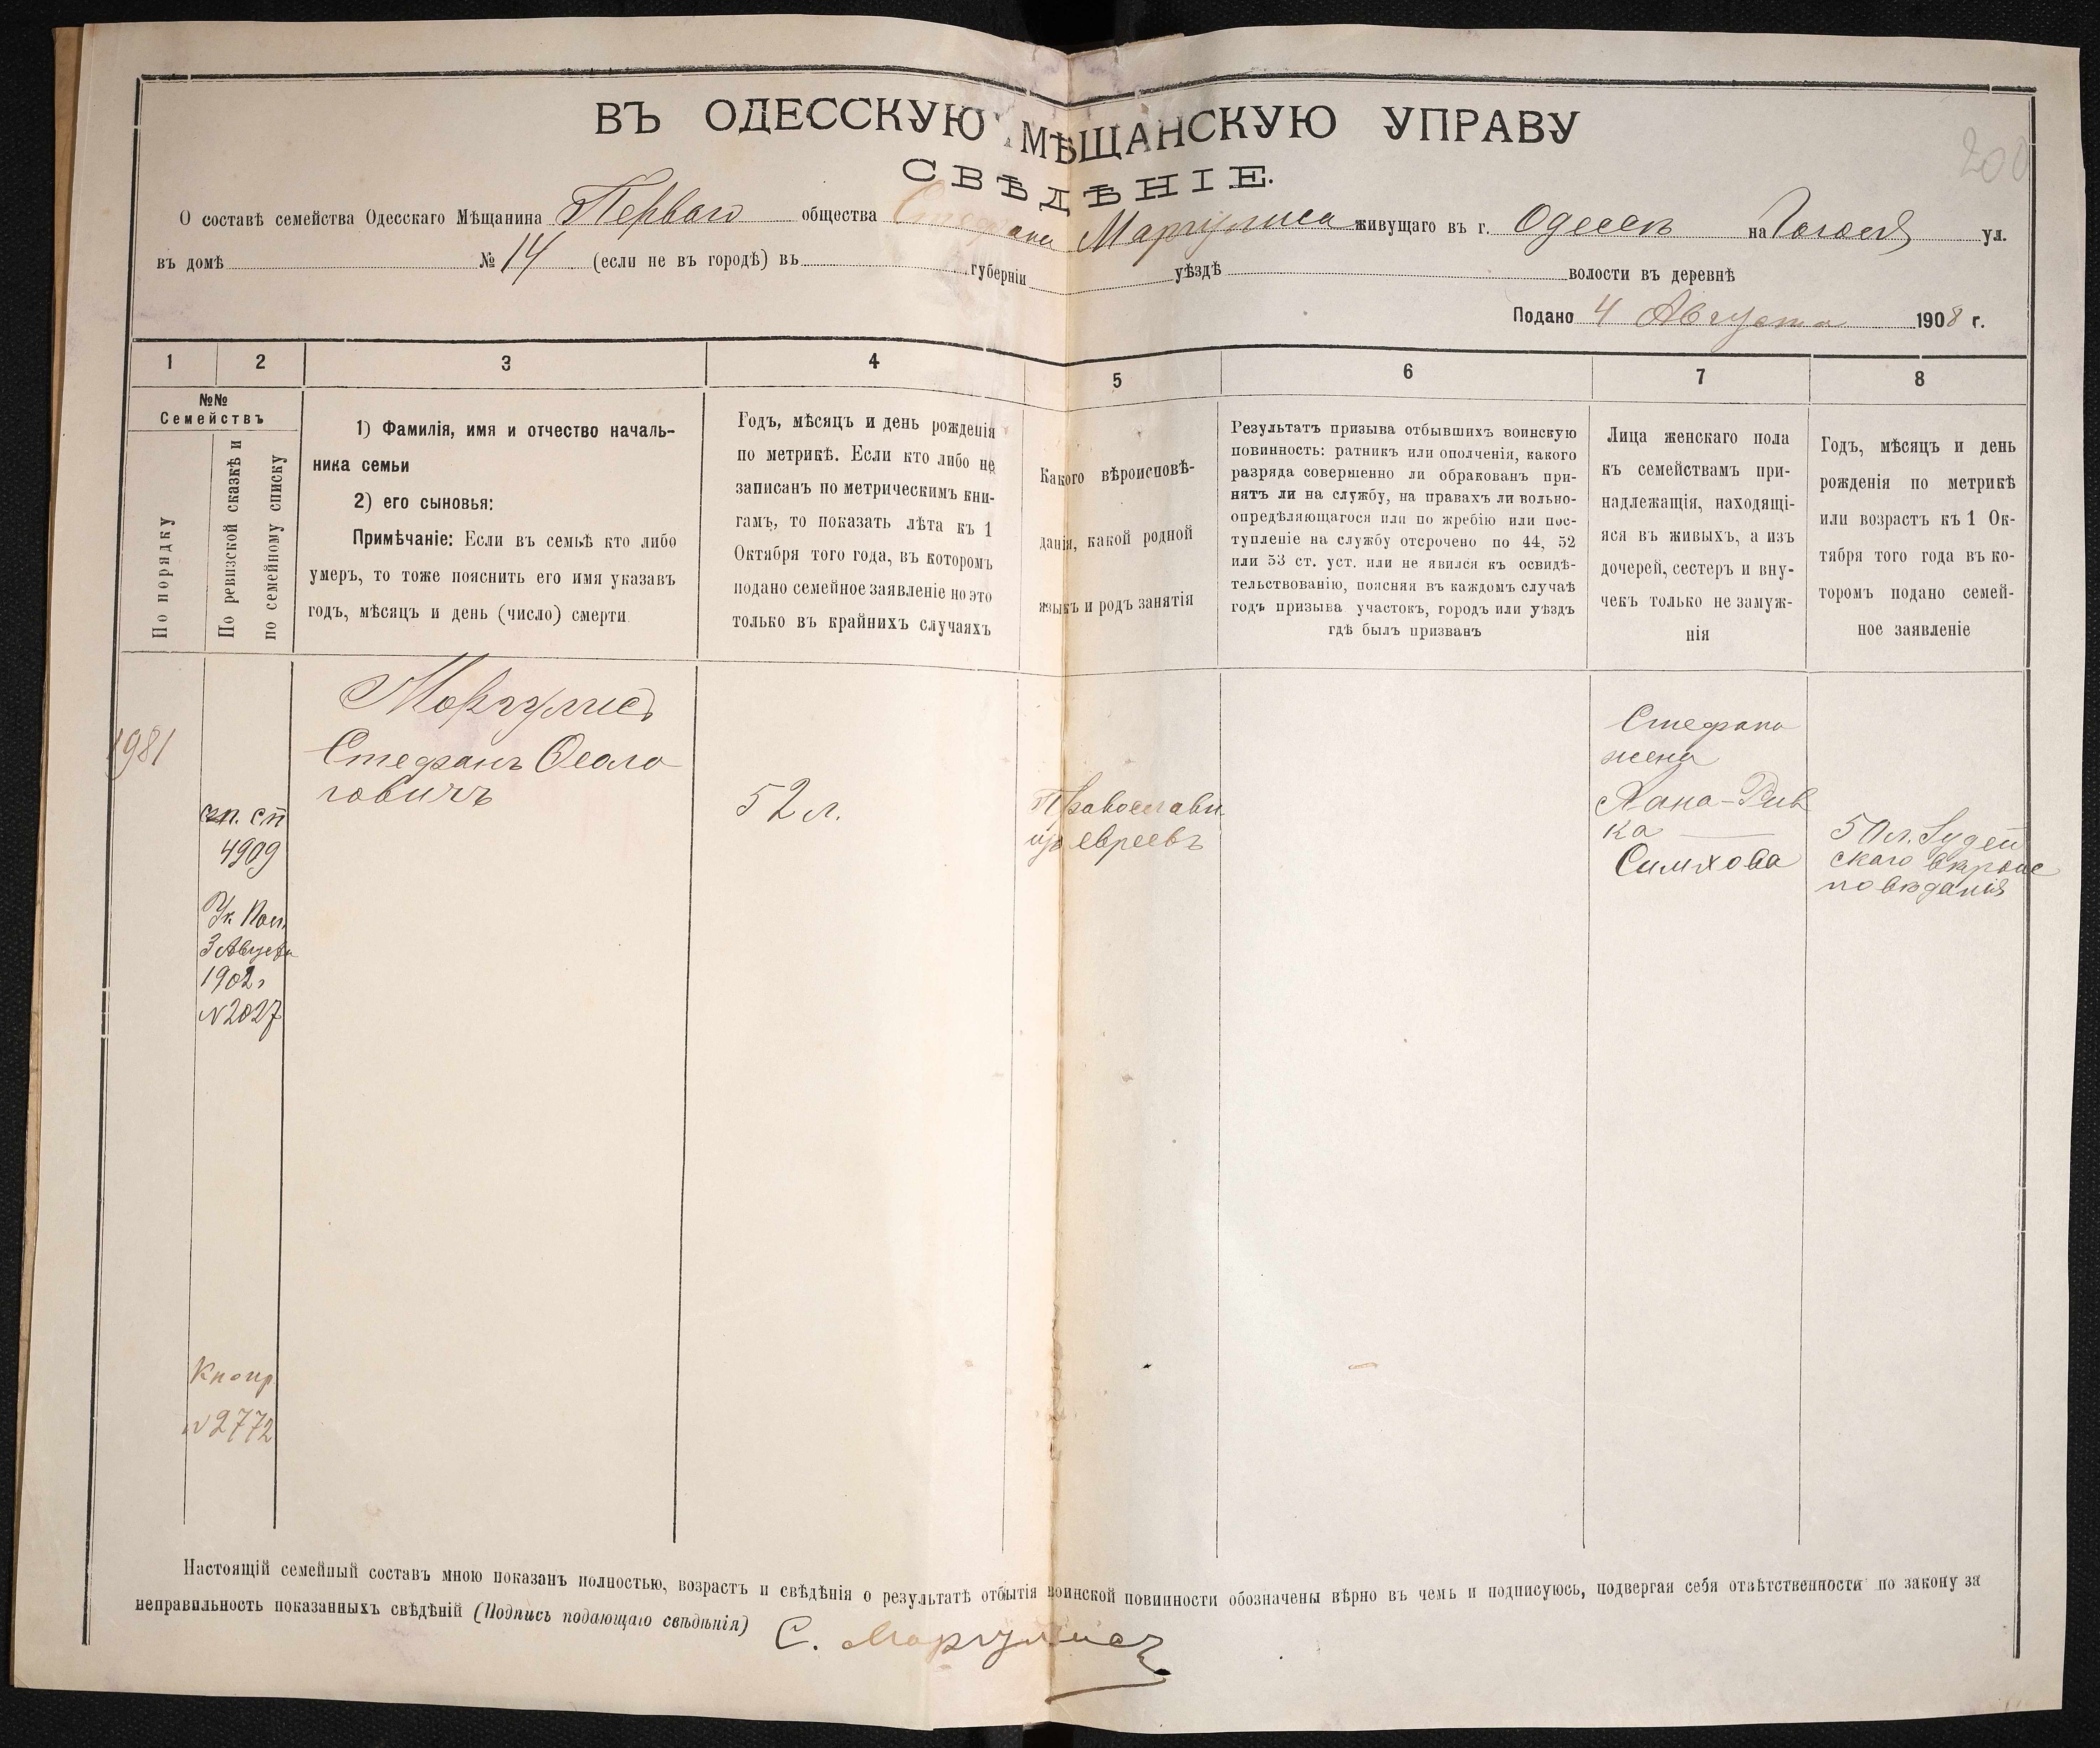 ВЪ ОДЕССКУЮ МѢЩАНСКУЮ УПРАВУ
СВѢДѢНІЕ.
200
О составѣ семейства Одесскаго Мѣщанина Перваго общества Стефана Маргулиса живущаго въ г. Одессѣ на Гоголя ул.
въ домѣ № 14 (если не въ городѣ) въ губерніи уѣздѣ волости въ деревнѣ
Подано 4 Августа 1908 г.
1 2 3 4 5 6 7 8
№№
Семействъ
По порядку
По ревизской сказкѣ и
по семейному списку
1) Фамилія, имя и отчество началь-
ника семьи
2) его сыновья:
Примѣчаніе: Если въ семьѣ кто либо
умеръ, то тоже пояснить его имя указавъ
годъ, мѣсяцъ и день (число) смерти
Годъ, мѣсяцъ и день рожденія
по метрикѣ. Если кто либо не
записанъ по метрическимъ кни-
гамъ, то показать лѣта къ 1
Октября того года, въ которомъ
подано семейное заявленіе но это
только въ крайнихъ случаяхъ
Какого вѣроисповѣ-
данія, какой родной
языкъ и родъ занятія
Результатъ призыва отбывшихъ воинскую
повинность: ратникъ или ополченія, какого
разряда совершенно ли обракованъ при-
нятъ ли на службу, на правахъ ли вольно-
опредѣляющагося или по жребію или пос-
тупленіе на службу отсрочено по 44, 52
или 53 ст. уст. или не явился къ освидѣ-
тельствованію, поясняя въ каждомъ случаѣ
годъ призыва участокъ, городъ или уѣздъ
гдѣ былъ призванъ
Лица женскаго пола
къ семействамъ при-
надлежащія, находящі-
яся въ живыхъ, а изъ
дочерей, сестеръ и вну-
чекъ только не замуж-
нія
Годъ, мѣсяцъ и день
рожденія по метрикѣ
или возрастъ къ 1 Ок-
тября того года въ ко-
торомъ подано семей-
ное заявленіе
1981
4909
3 Августа
1902 г
№ 2027
№ 2772
Моргулисъ
Стефанъ
говичъ
52 л.
Православн.
изъ евреевъ
Стефана
жена
Хана-Рив
ка
Симхова
50 л. Іудей
скаго вѣроис
повѣданія
Настоящій семейный составъ мною показанъ полностью, возрастъ и свѣдѣнія о результатѣ отбытія воинской повинности обозначены вѣрно въ чемъ и подписуюсь, подвергая себя отвѣтственности по закону за
неправильность показанныхъ свѣдѣній (Подпись подающаго свѣдѣнія) С. Моргулисъ